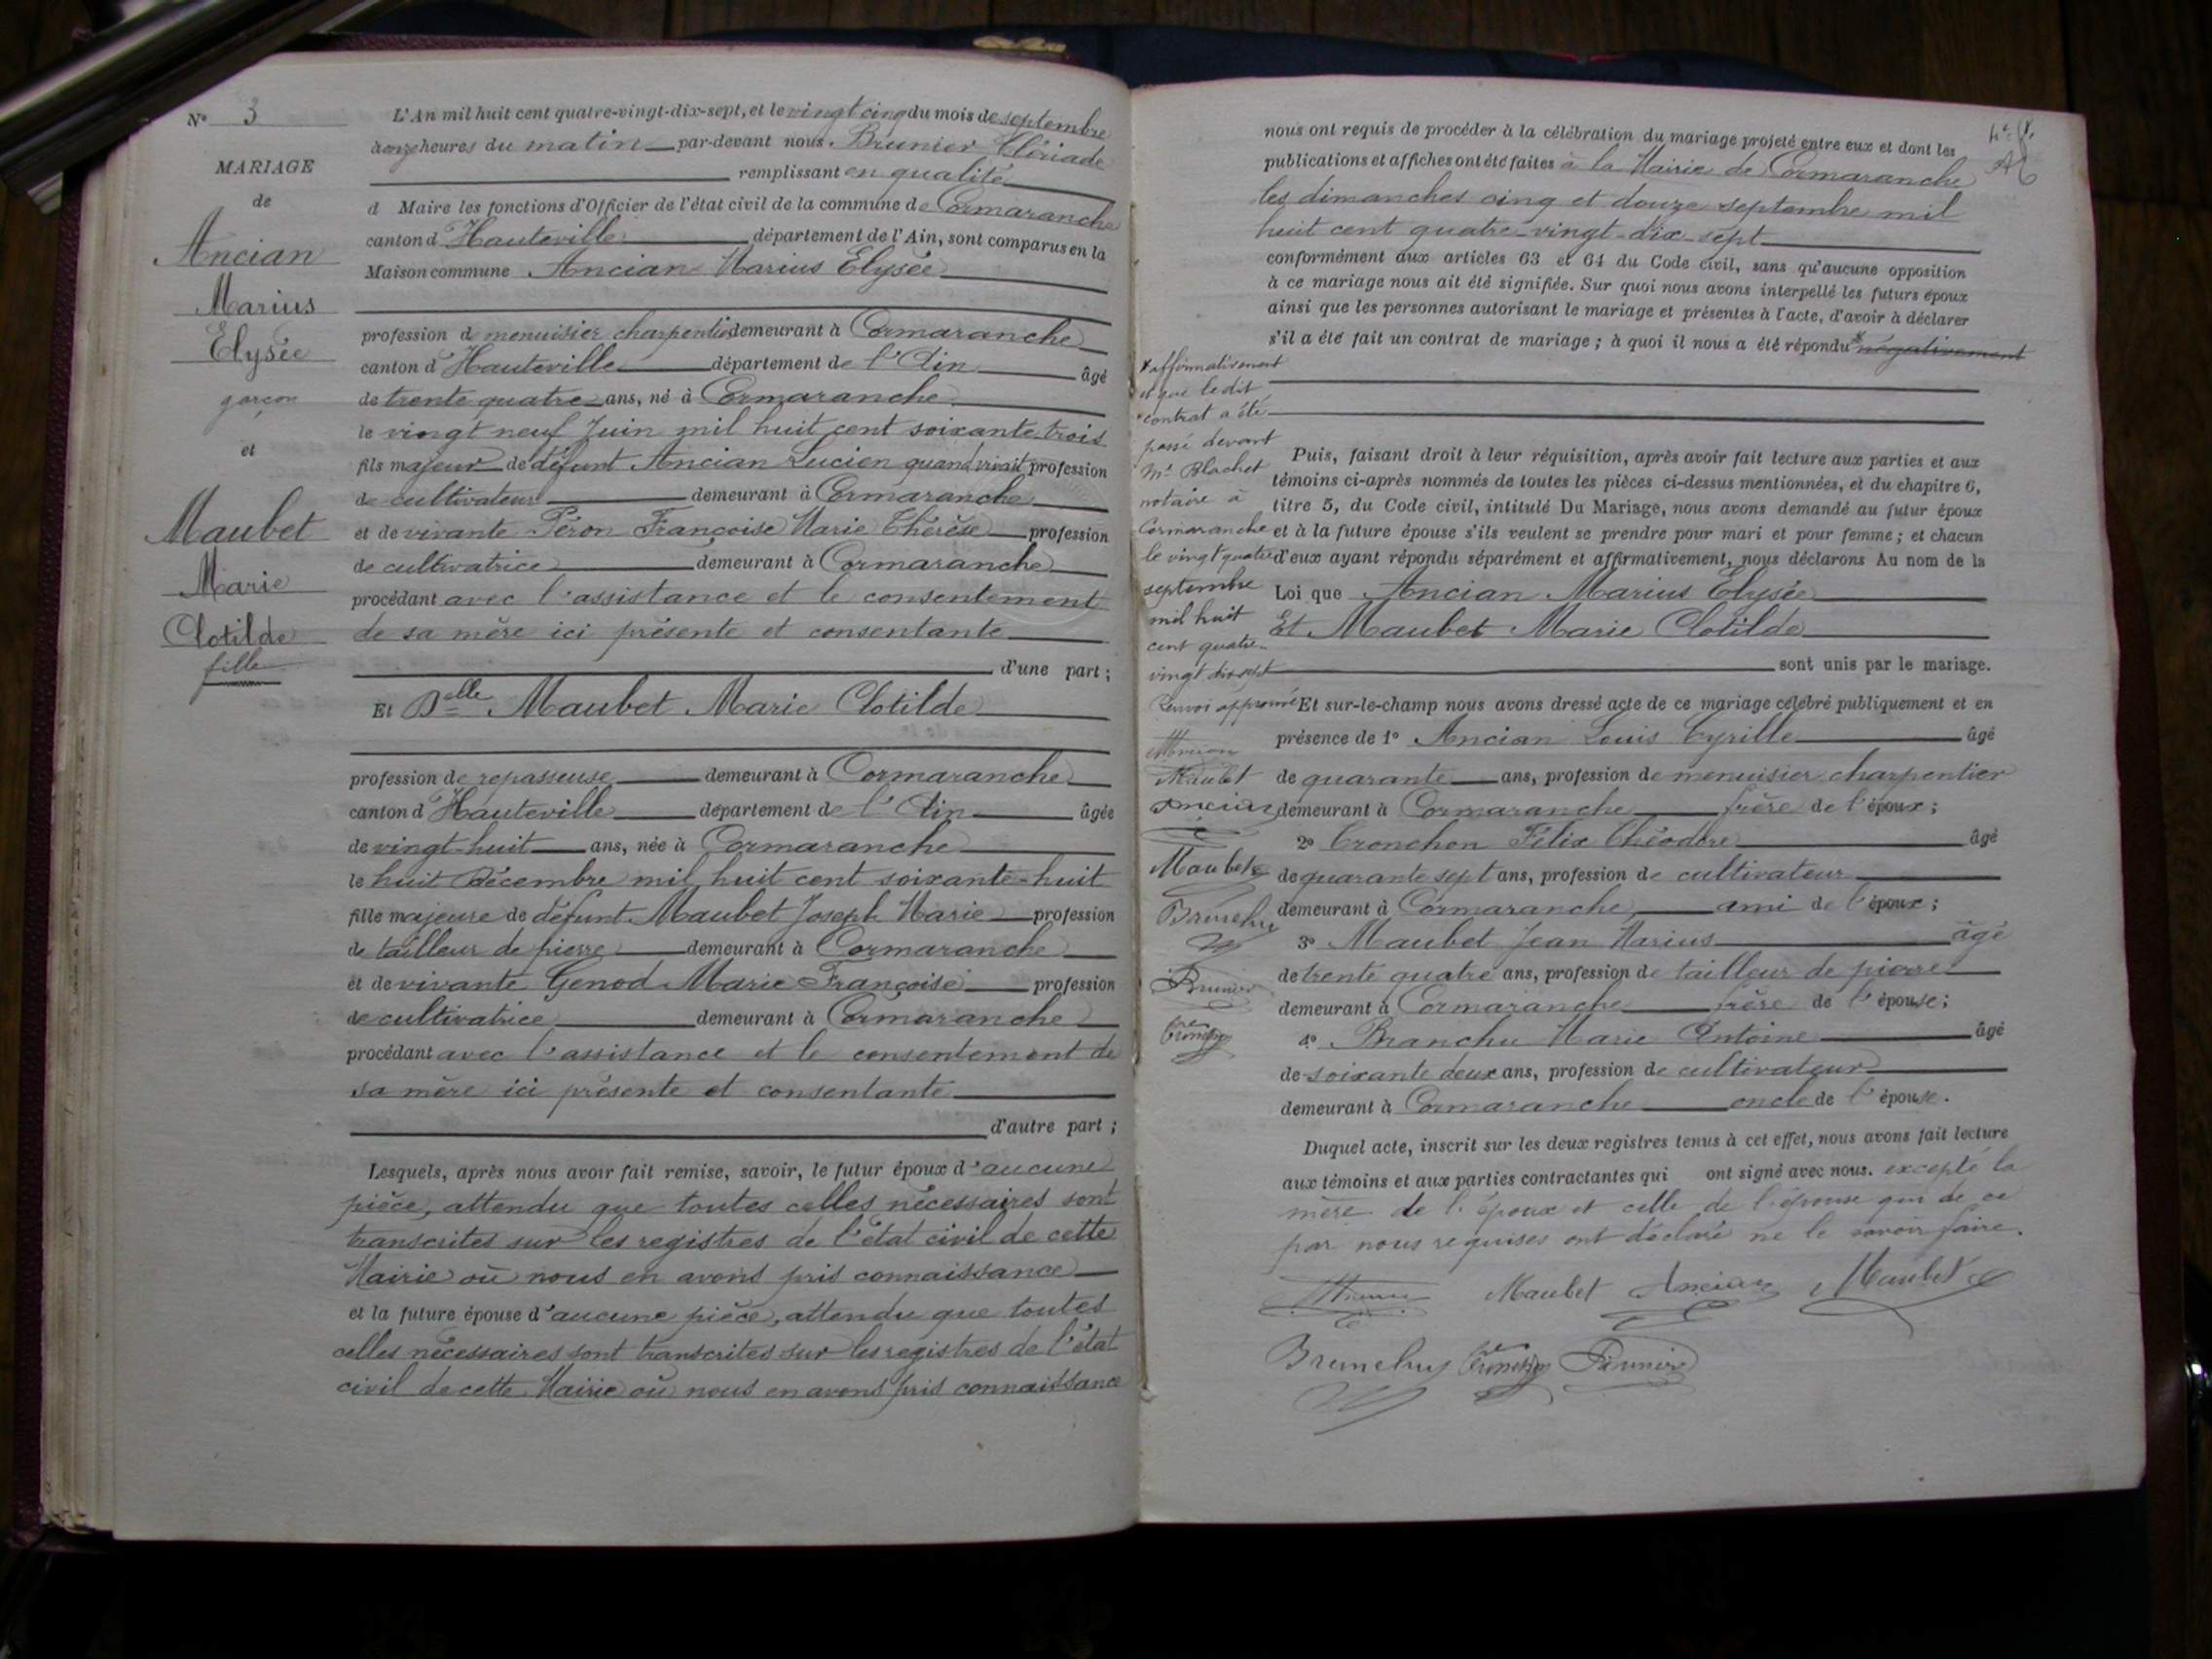 N° 3
MARIAGE
de
Ancian
Marius
Elysée
garçon
et
Maubet
Marie
Clotilde
fille
L'An mil huit cent quatre-vingt-dix-sept, et le vingt cinq du mois de septembre
à onze heures du matin par-devant nous Brunier Clériade
remplissant en qualité
d Maire les fonctions d'Officier de l'état civil de la commune de Cormaranche
canton d'Hauteville département de l'Ain, sont comparus en la
Maison commune Ancian Marius Elysée
profession de menuisier charpentier demeurant à Cormaranche
canton d'Hauteville département de l'Ain âgé
de trente quatre ans, né à Cormaranche
le vingt neuf Juin mil huit cent soixante trois
fils majeur de défunt Ancian Lucien quand vivait profession
de cultivateur demeurant à Cormaranche
et de vivante Péron Françoise Marie Thérèse profession
de cultivatrice demeurant à Cormaranche
procédant avec l'assistance et le consentement
de sa mère ici présente et consentante
d'une part ;
Et Delle Maubet Marie Clotilde
profession de repasseuse demeurant à Cormaranche
canton d'Hauteville département de l'Ain âgée
de vingt-huit ans, née à Cormaranche
le huit Décembre mil huit cent soixante-huit
fille majeure de défunt Maubet Joseph Marie profession
de tailleur de pierre demeurant à Cormaranche
et de vivante Genod Marie Françoise profession
de cultivatrice demeurant à Cormaranche
procédant avec l'assistance et le consentement de
sa mère ici présente et consentante
d'autre part ;
Lesquels, après nous avoir fait remise, savoir, le futur époux d'aucune
pièce, attendu que toutes celles nécessaires sont
transcrites sur les registres de l'état civil de cette
Mairie où nous en avons pris connaissance
et la future épouse d'aucune pièce, attendu que toutes
celles nécessaires sont transcrites sur les registres de l'état
civil de cette Mairie où nous en avons pris connaissance
nous ont requis de procéder à la célébration du mariage projeté entre eux et dont les
publications et affiches ont été faites à la Mairie de Cormaranche
les dimanches cinq et douze septembre mil
huit cent quatre-vingt-dix-sept
conformément aux articles 63 et 64 du Code civil, sans qu'aucune opposition
à ce mariage nous ait été signifiée. Sur quoi nous avons interpellé les futurs époux
ainsi que les personnes autorisant le mariage et présentes à l'acte, d'avoir à déclarer
s'il a été fait un contrat de mariage ; à quoi il nous a été répondu * négativement
* affirmativement
et que le dit
contrat a été
passé devant
Me Blachet
notaire à
Cormaranche
le vingt quatre
septembre
mil huit
cent quatre-
vingt dix-sept
Renvoi approuvé
Maubet
Ancian
Maubet
Brunier
Puis, faisant droit à leur réquisition, après avoir fait lecture aux parties et aux
témoins ci-après nommés de toutes les pièces ci-dessus mentionnées, et du chapitre 6,
titre 5, du Code civil, intitulé Du Mariage, nous avons demandé au futur époux
et à la future épouse s'ils veulent se prendre pour mari et pour femme ; et chacun
d'eux ayant répondu séparément et affirmativement, nous déclarons Au nom de la
Loi que Ancian Marius Elysée
Et Maubet Marie Clotilde
sont unis par le mariage.
Et sur-le-champ nous avons dressé acte de ce mariage célébré publiquement et en
présence de 1° Ancian Louis Cyrille âgé
de quarante ans, profession de menuisier charpentier
demeurant à Cormaranche frère de l'époux ;
2° Cronchon Félix Théodore âgé
de quarante sept ans, profession de cultivateur
demeurant à Cormaranche, ami de l'époux ;
3° Maubet Jean Marius âgé
de trente quatre ans, profession de tailleur de pierre
demeurant à Cormaranche frère de l'épouse ;
4° Branchu Marie Antoine âgé
de soixante deux ans, profession de cultivateur
demeurant à Cormaranche oncle de l'épouse.
Duquel acte, inscrit sur les deux registres tenus à cet effet, nous avons fait lecture
aux témoins et aux parties contractantes qui ont signé avec nous. excepté la
mère de l'époux et celle de l'épouse qui de ce
par nous requises ont déclaré ne le savoir faire.
Maubet Ancian Maubet
Brunier